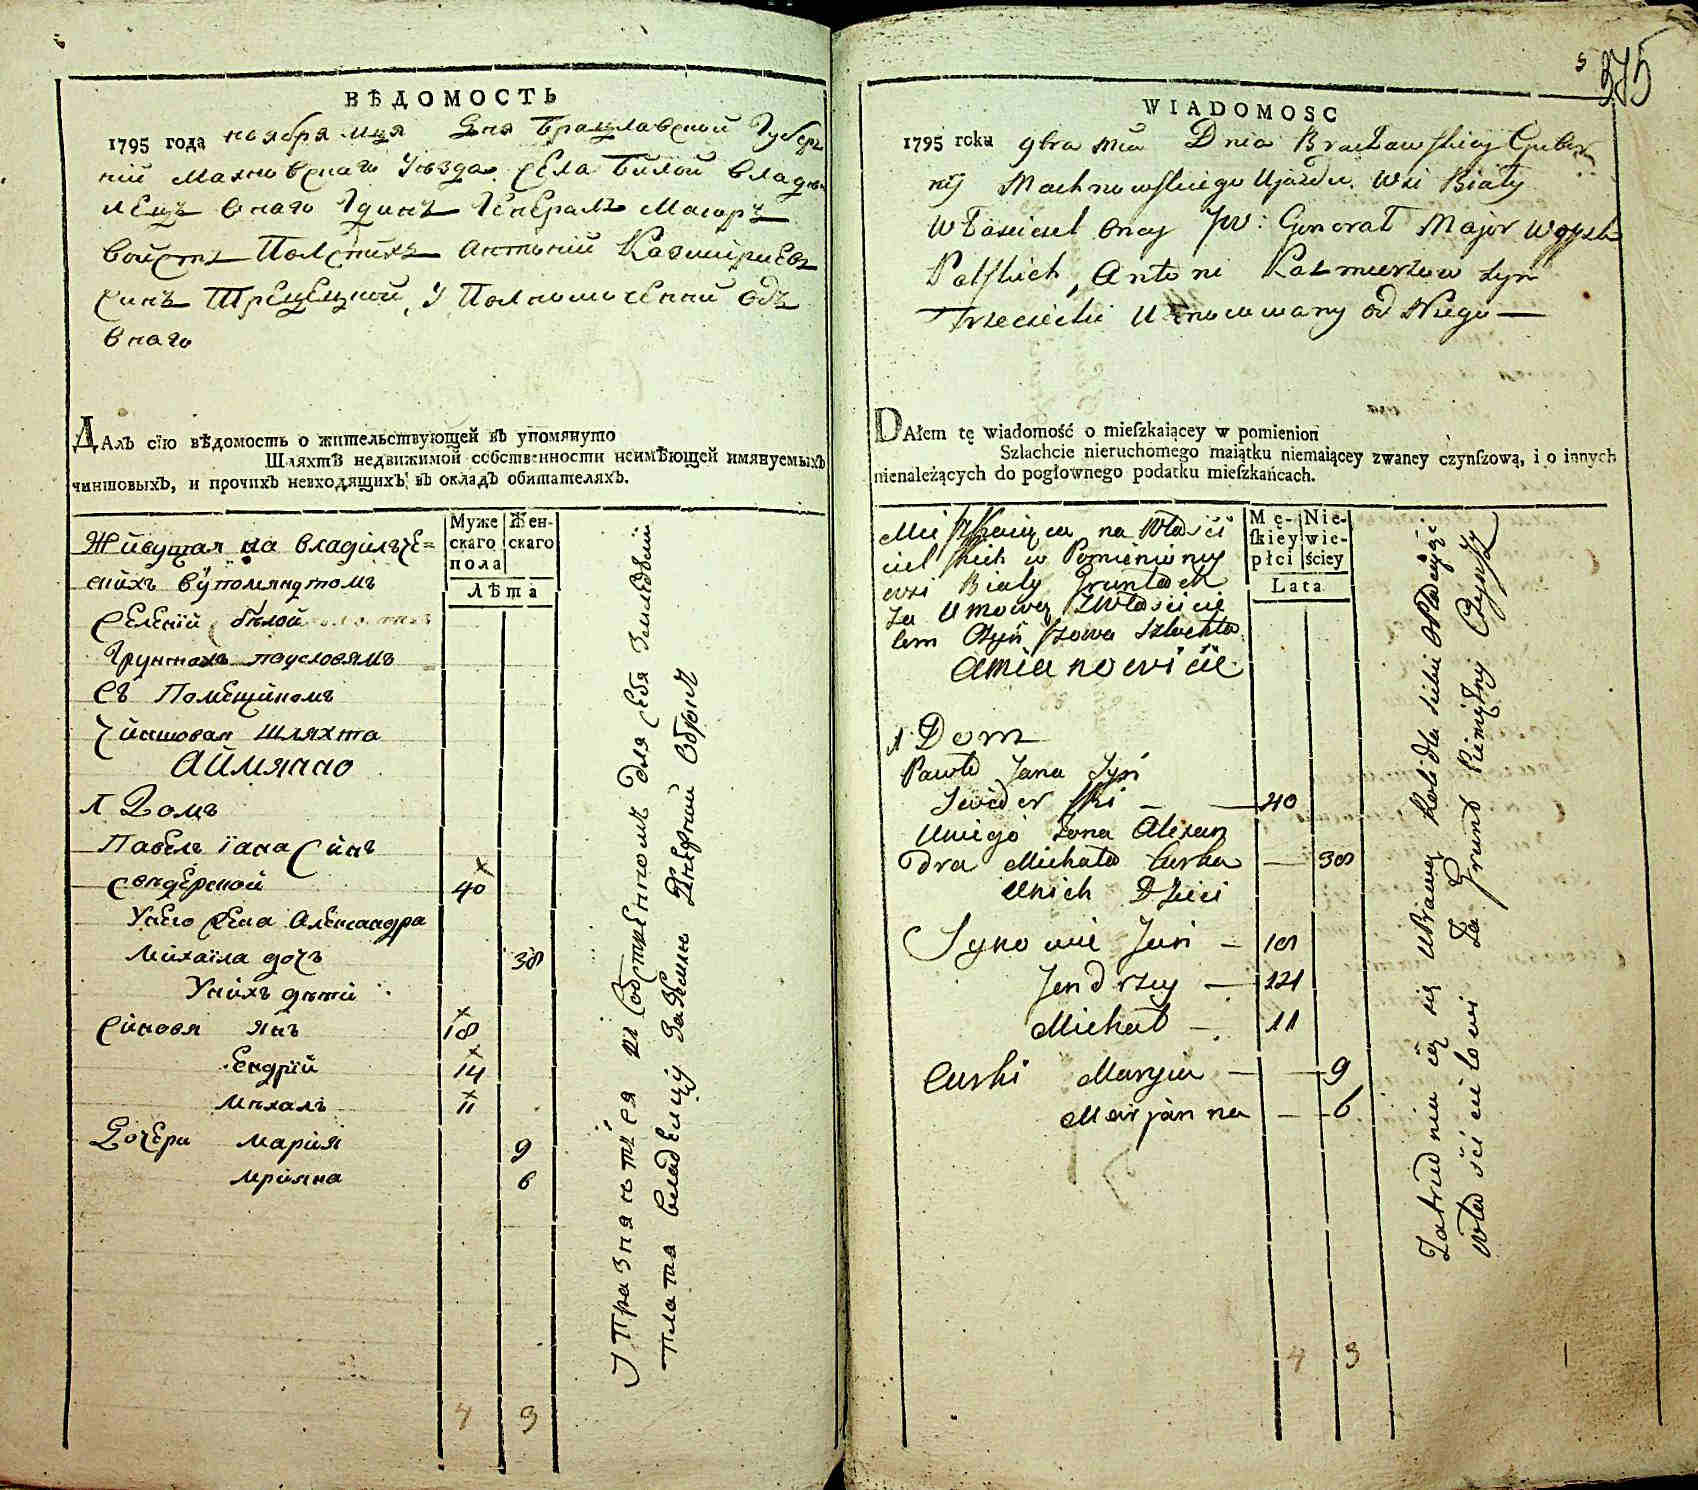 ВѢДОМОСТЬ
1795 года ноября мця Дня Брацлавской Губер
ній Махновскаго Уѣзда села Билой владѣ
лецъ онаго Генералъ Маіоръ
войскъ Полскихъ Антоній Казмировъ
синъ Трецецкой, У Полномочений одъ
онаго
ДАлъ сїю вѣдомость о жительствующей въ упомянуто
Шляхтѣ недвижимой собственности неимѣющей имянуемыхъ
чиншовыхъ, и прочихъ невходящихъ въ окладъ обитателяхъ.
Муже
скаго
пола
Жен-
скаго
Лѣта
Живущая на владилъче=
скихъ вупомянутомъ
Селеній белой
Грунтахъ поусловямъ
Съ Помещикомъ
Чиншовая шляхта
Аймянно
1 Домъ
Павелъ Іана Синъ
Свидерской 40
Унего Жена Александра
Михаіла дочъ 38
Унихъ дѣти
Синовя Янъ 18
Ендрій 14
Михалъ 11
Дочери Марія 9
Мрияна 6
4 3
Плата владелцу
5 375
WIADOMOSC
1795 roku 9bra Mca Dnia Bracławskiey Guber
nij Machnowskiego Ujazdu. Wsi Biały
Włascicel oney JW: Generał Major Woysk
Polskich, Antoni Kazmierzow syn
Trzeciecki Umocowany od Niego —
DAłem tę wiadomość o mieſzkaiącey w pomienion
Szlachcie nieruchomego maiątku niemaiącey zwaney czynſzową, i o innych
nienależących do pogłownego podatku mieſzkańcach.
Mę-
ſkiey
płci
Nie-
wie-
ściey
Lata
Mieszkaiąca na Właści
cielskich w Pomienioney
wsi Biały Gruntach
za Umową Zwłaścicie
lem Czynszowa Szlachta
Amianowicie
1 Dom
Paweł Jana Syn
Swiderski — 40
Uniego Żona Alexan
dra Michała Curka — 38
Unich Dzieci
Synowie Jan — 18
Jendrzey — 14
Michał — 11
Curki Maryia — 9
Marjanna — 6
4 3
Zatrudnia ięć się uprawą Roli dla siebie opłacaiąc
właścicielowi za Grunt Pieniężny Czynsz